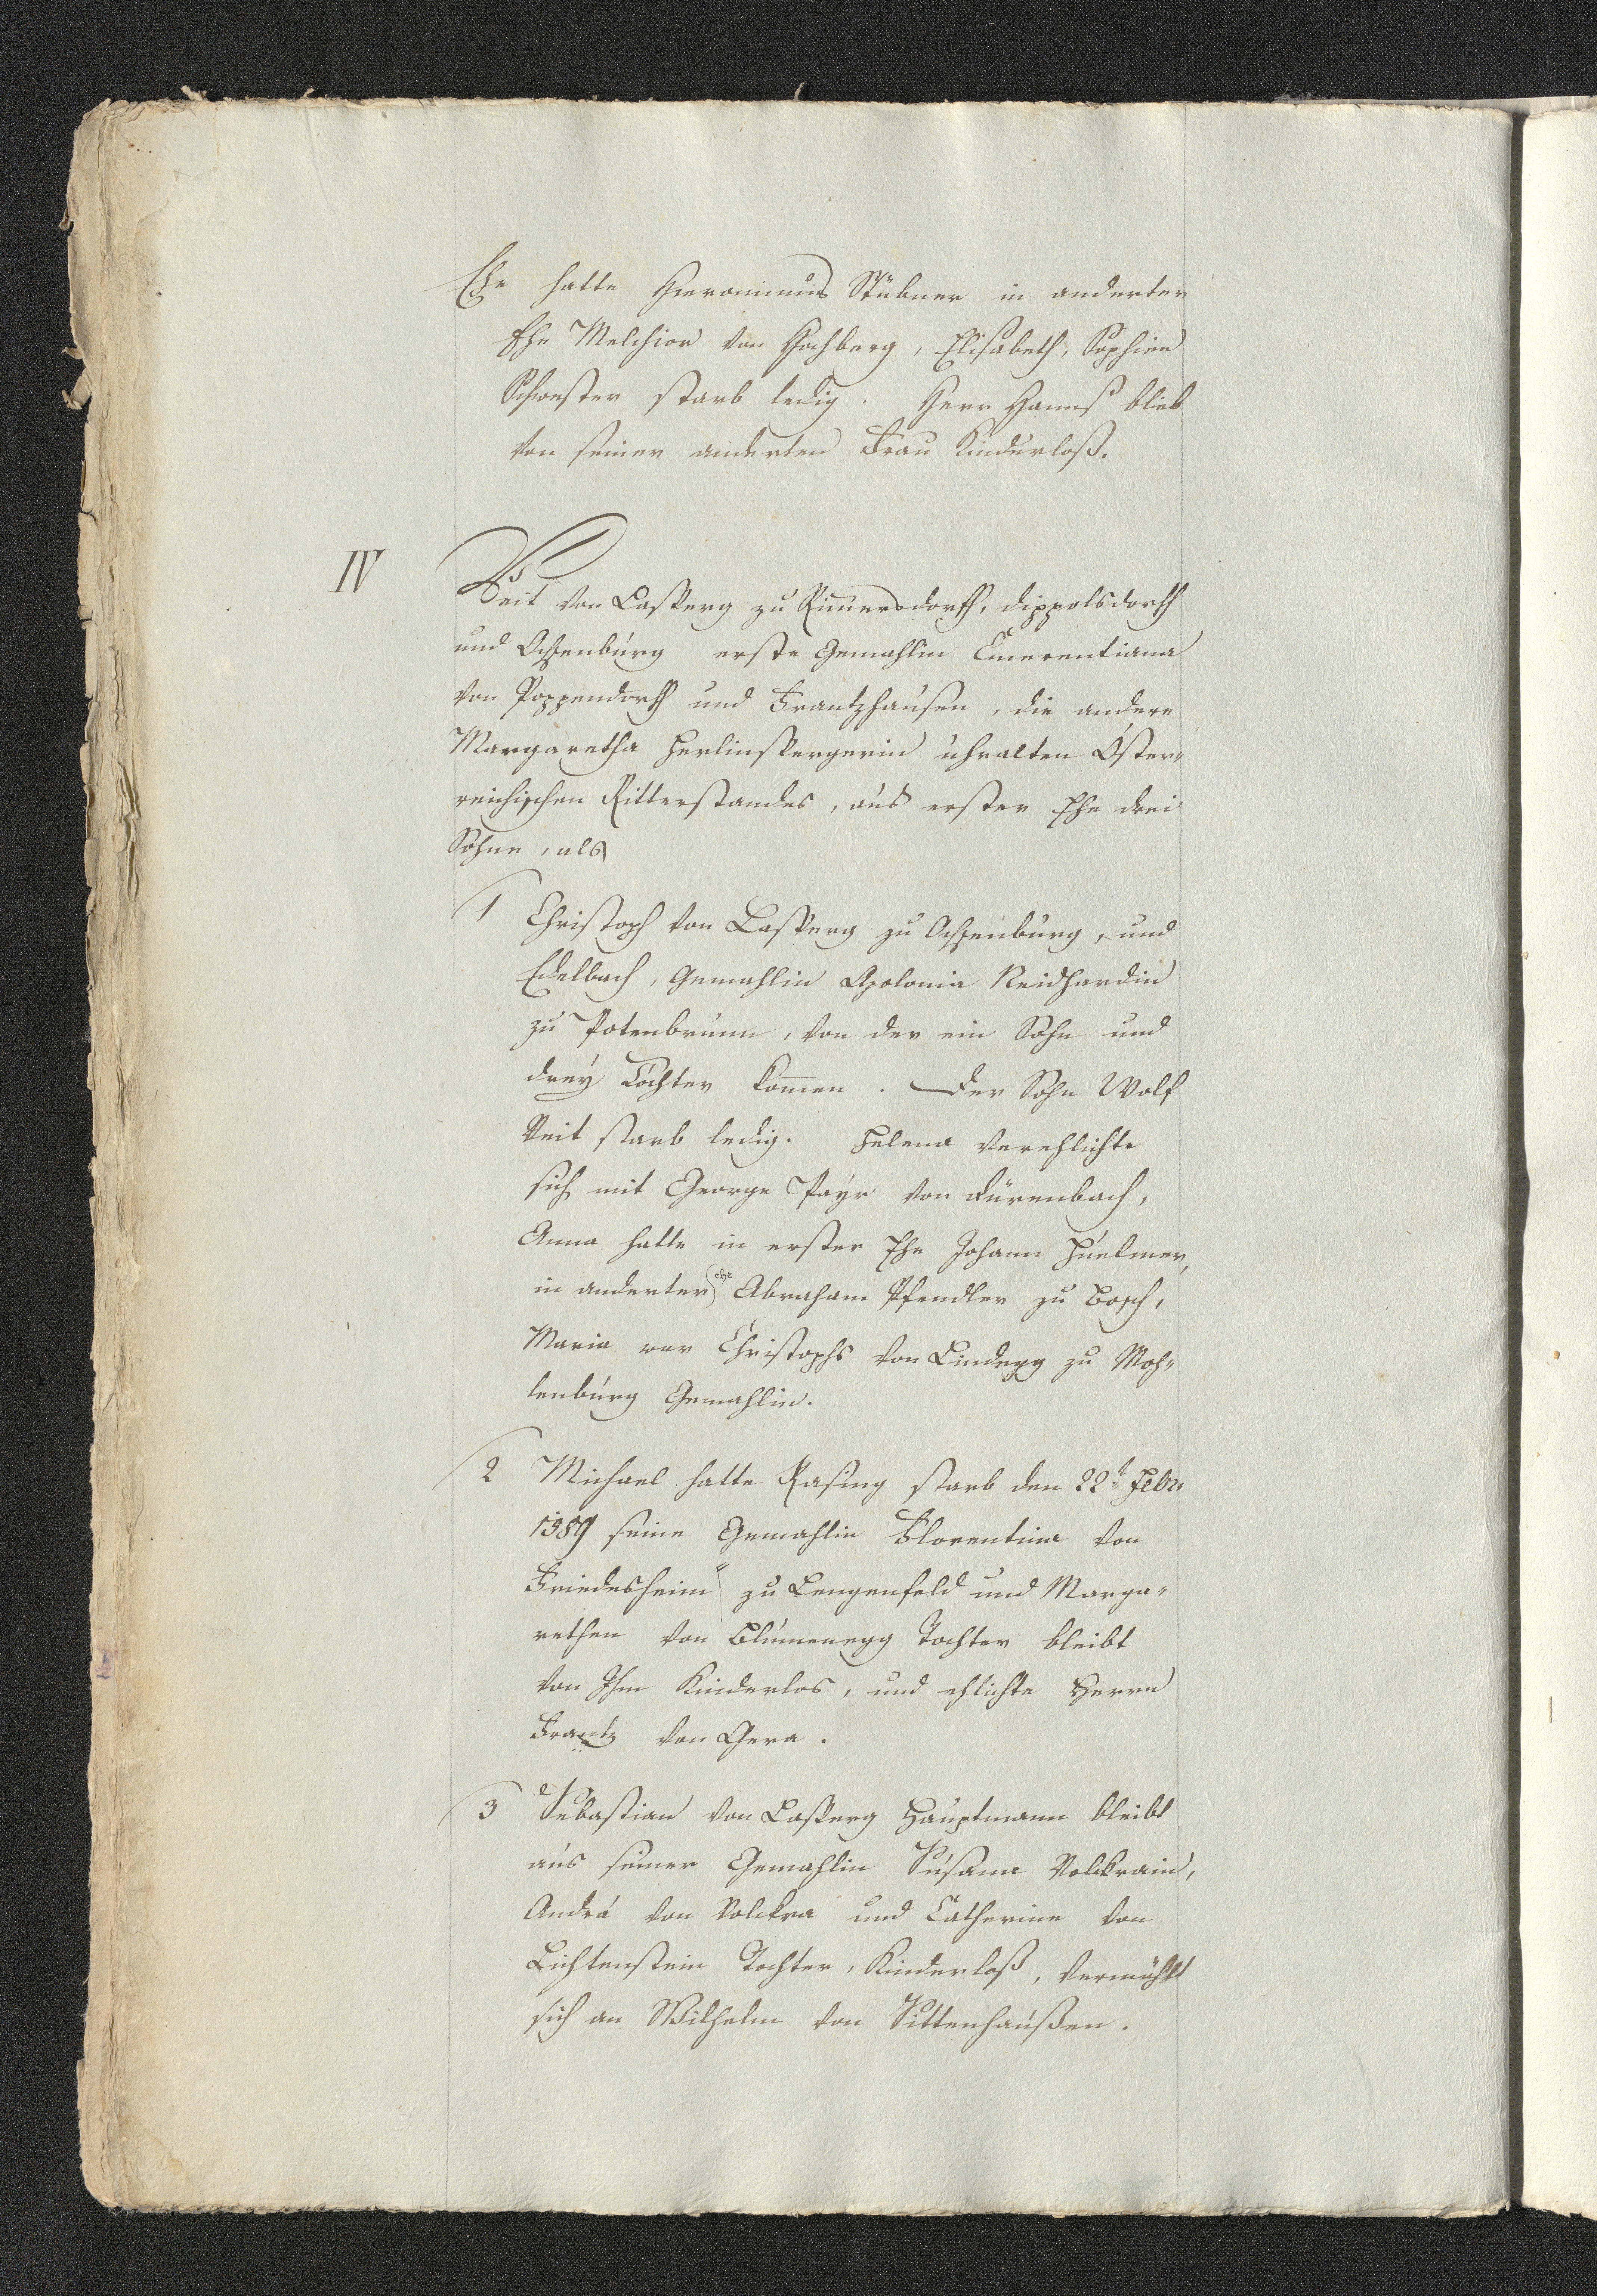 Ehe hatte Hieronimus Stübner in anderter
Ehe Melchior von Hochberg, Elisabeth, Sophien
Schwester starb ledig. Herr Hannß blieb
von seiner anderten Frau Kinderloß.
IV
Veit von Lasperg zu Rimersdorff, Dippolsdorff
und Ochsenburg erste Gemahlin Emerentiana
von Poppendorff und Frantzhausen, die andere
Margaretha Herlinspergerin uhralten Öster-
reichischen Ritterstandes, aus erster Ehe drei
Söhne, als
1 Christoph von Lasperg zu Ochsenburg, und
Edelbach, Gemahlin Apolonia Neidhardin
zu Potenbrunn, von der ein Sohn und
drey Töchter komen. Der Sohn Wolf
Veit starb ledig. Helena verehlichte
sich mit George Payr von Dürenbach,
Anna hatte in erster Ehe Johann Huelmer,
in anderter ehe Abraham Pfendler zu Bosch,
Maria war Christophs von Lindegg zu Moh-
lenburg Gemahlin.
2 Michael hatte Rasing starb den 22t Febr.
1589 seine Gemahlin Florentina von
Friedesheim zu Lengenfeld und Marga-
rethen von Blumenegg Tochter bleibt
von Ihm Kinderlos, und ehlichte Herrn
Frantz von Gera.
3 Sebastian von Lasperg Hauptmann bleibt
aus seiner Gemahlin Susana Volckrain,
Andrä von Volckra und Catherine von
Lichtenstein Tochter, Kinderloß, vermählt
sich an Wilhelm von Sittenhaußen.